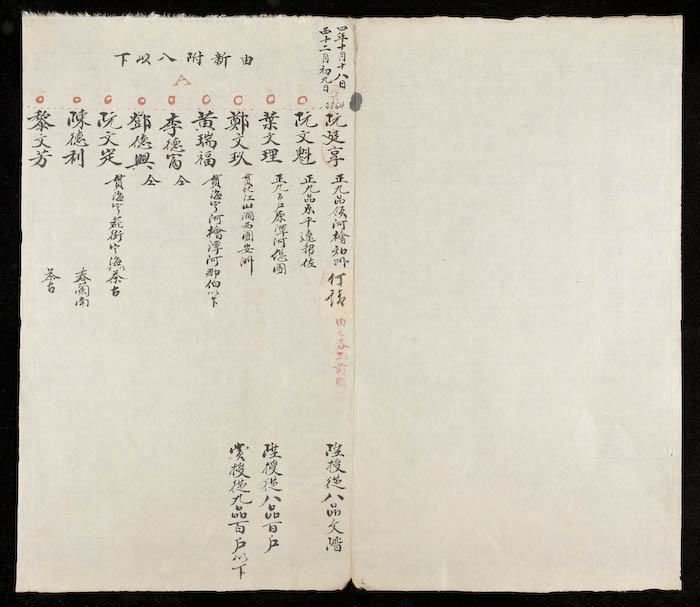 四年十月十八日
西十二月初九日
由新附八以下
A
阮廷享 正九品領河檜知州 陞授從八品文階
阮文魁 正九品 平 幫佐
葉文理 正九百戶原潭河總團 陞授從八品百戶
鄭文玖 貫北江山洞西團安州 賞授從九品百戶以下
黃瑞福 貫海寧河檜潭河那伯以下
李德富 仝
鄧德興 仝
阮文定 貫海寧 街寧海茶古
陳德利 春蘭南
黎文芳 茶古